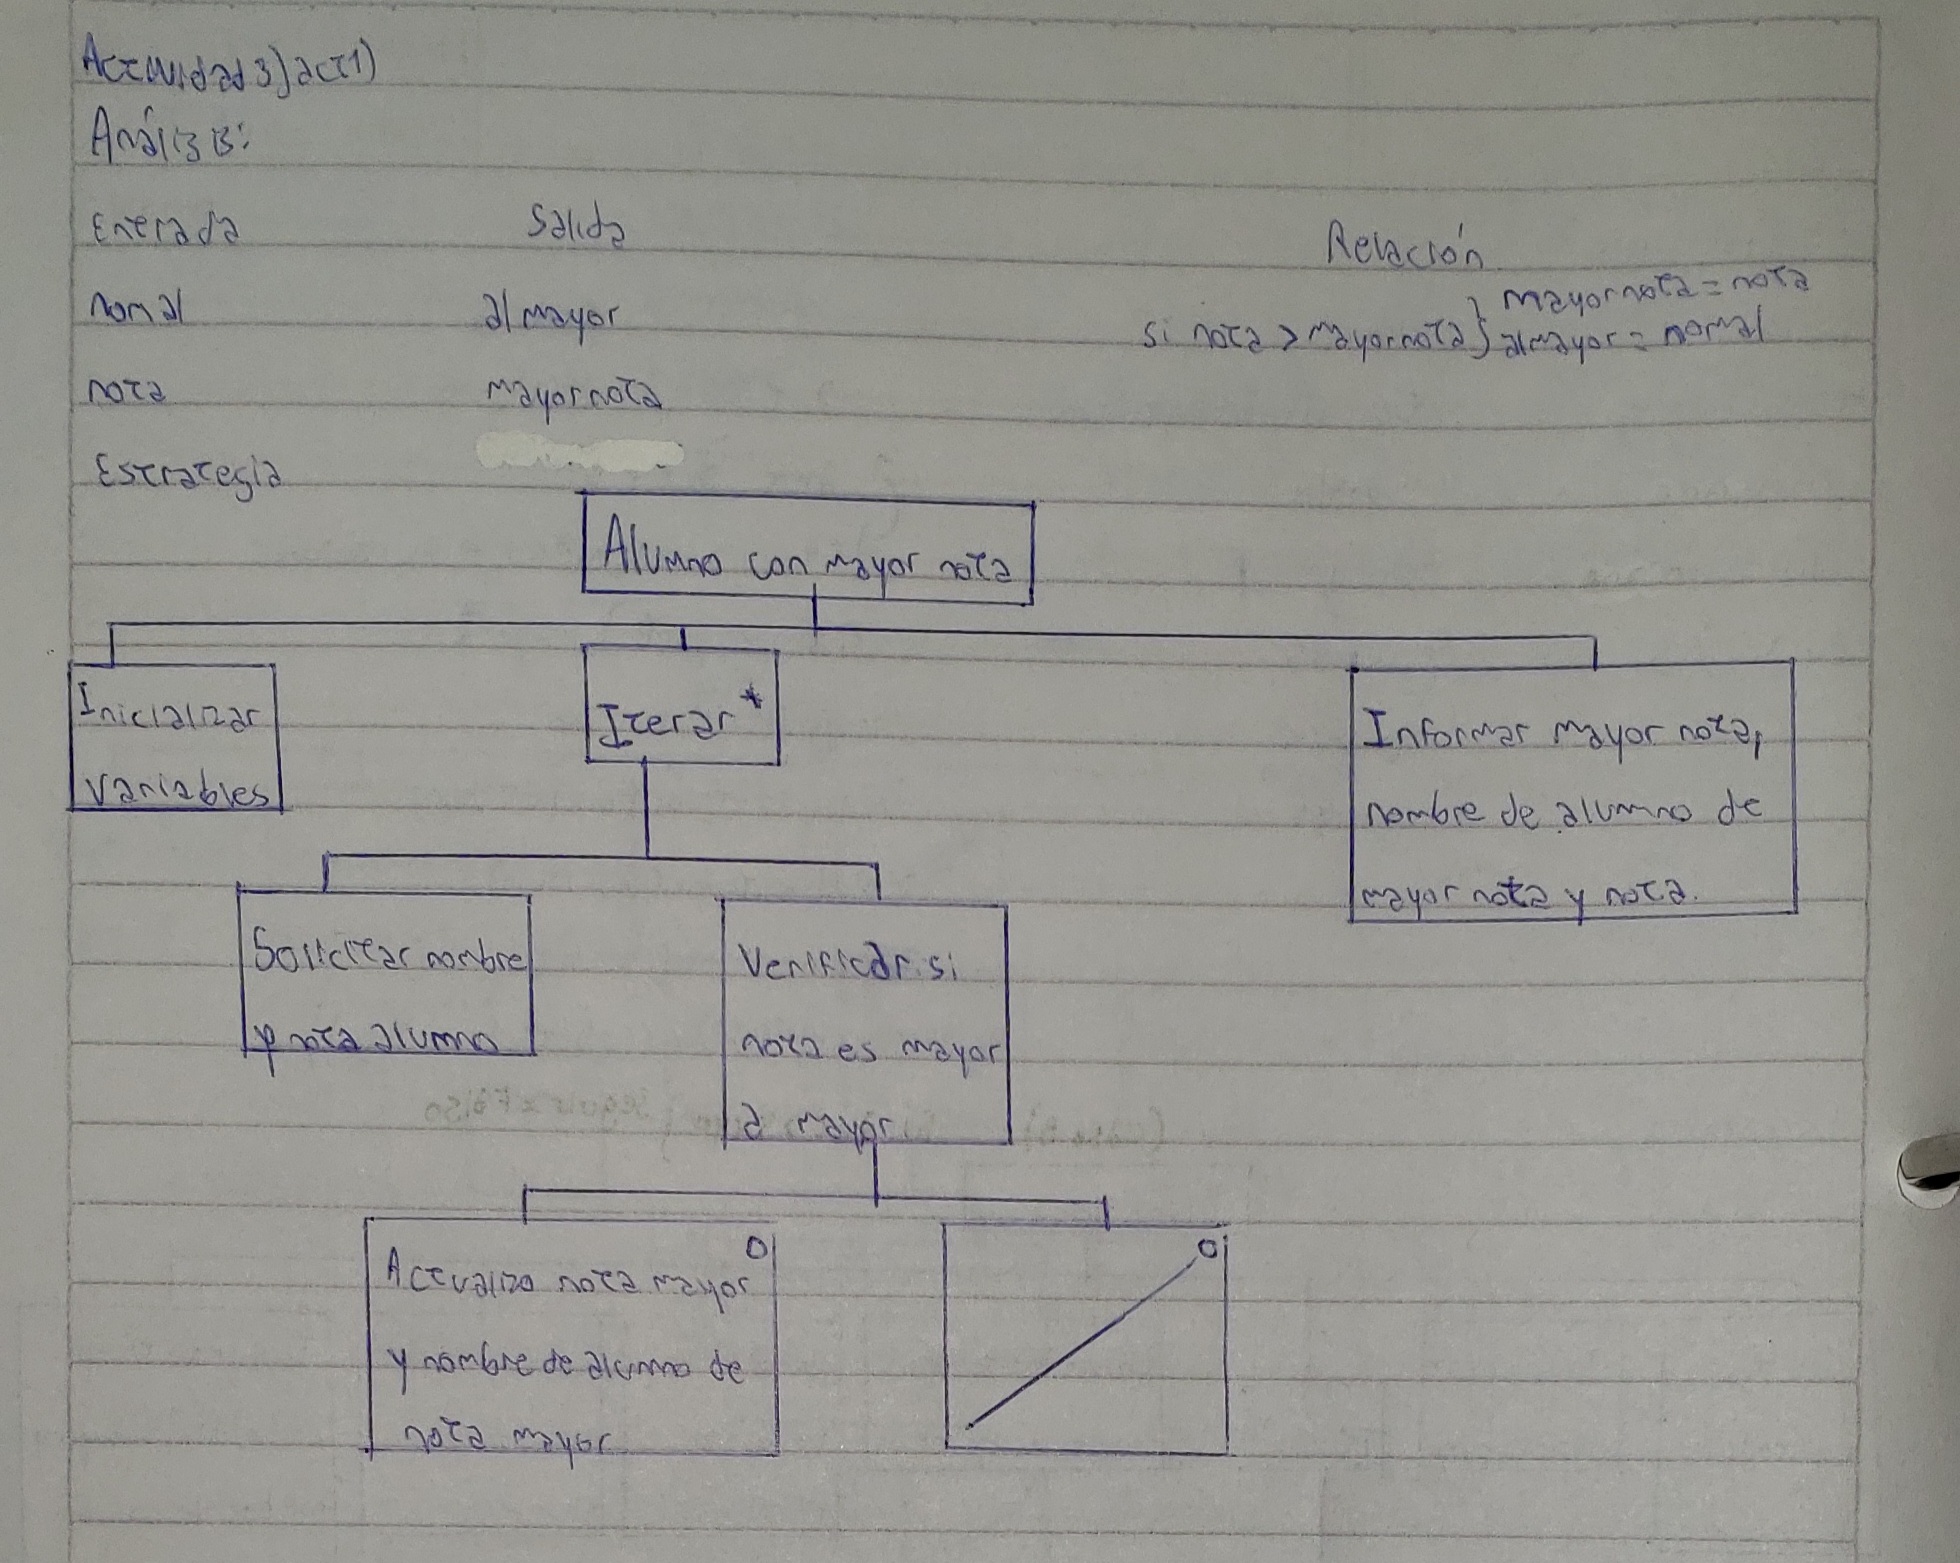 Actividad 3) act 1)
Análisis:
Entrada Salida Relación
nomal almayor si nota > mayornota } mayornota = nota
almayor = nomal
nota mayornota
Estrategia
Alumno con mayor nota
Inicializar
variables
Iterar *
Informar mayor nota,
nombre de alumno de
mayor nota y nota.
Solicitar nombre
y nota alumno
Verificar si
nota es mayor
a mayor
Actualizo nota mayor
y nombre de alumno de
nota mayor